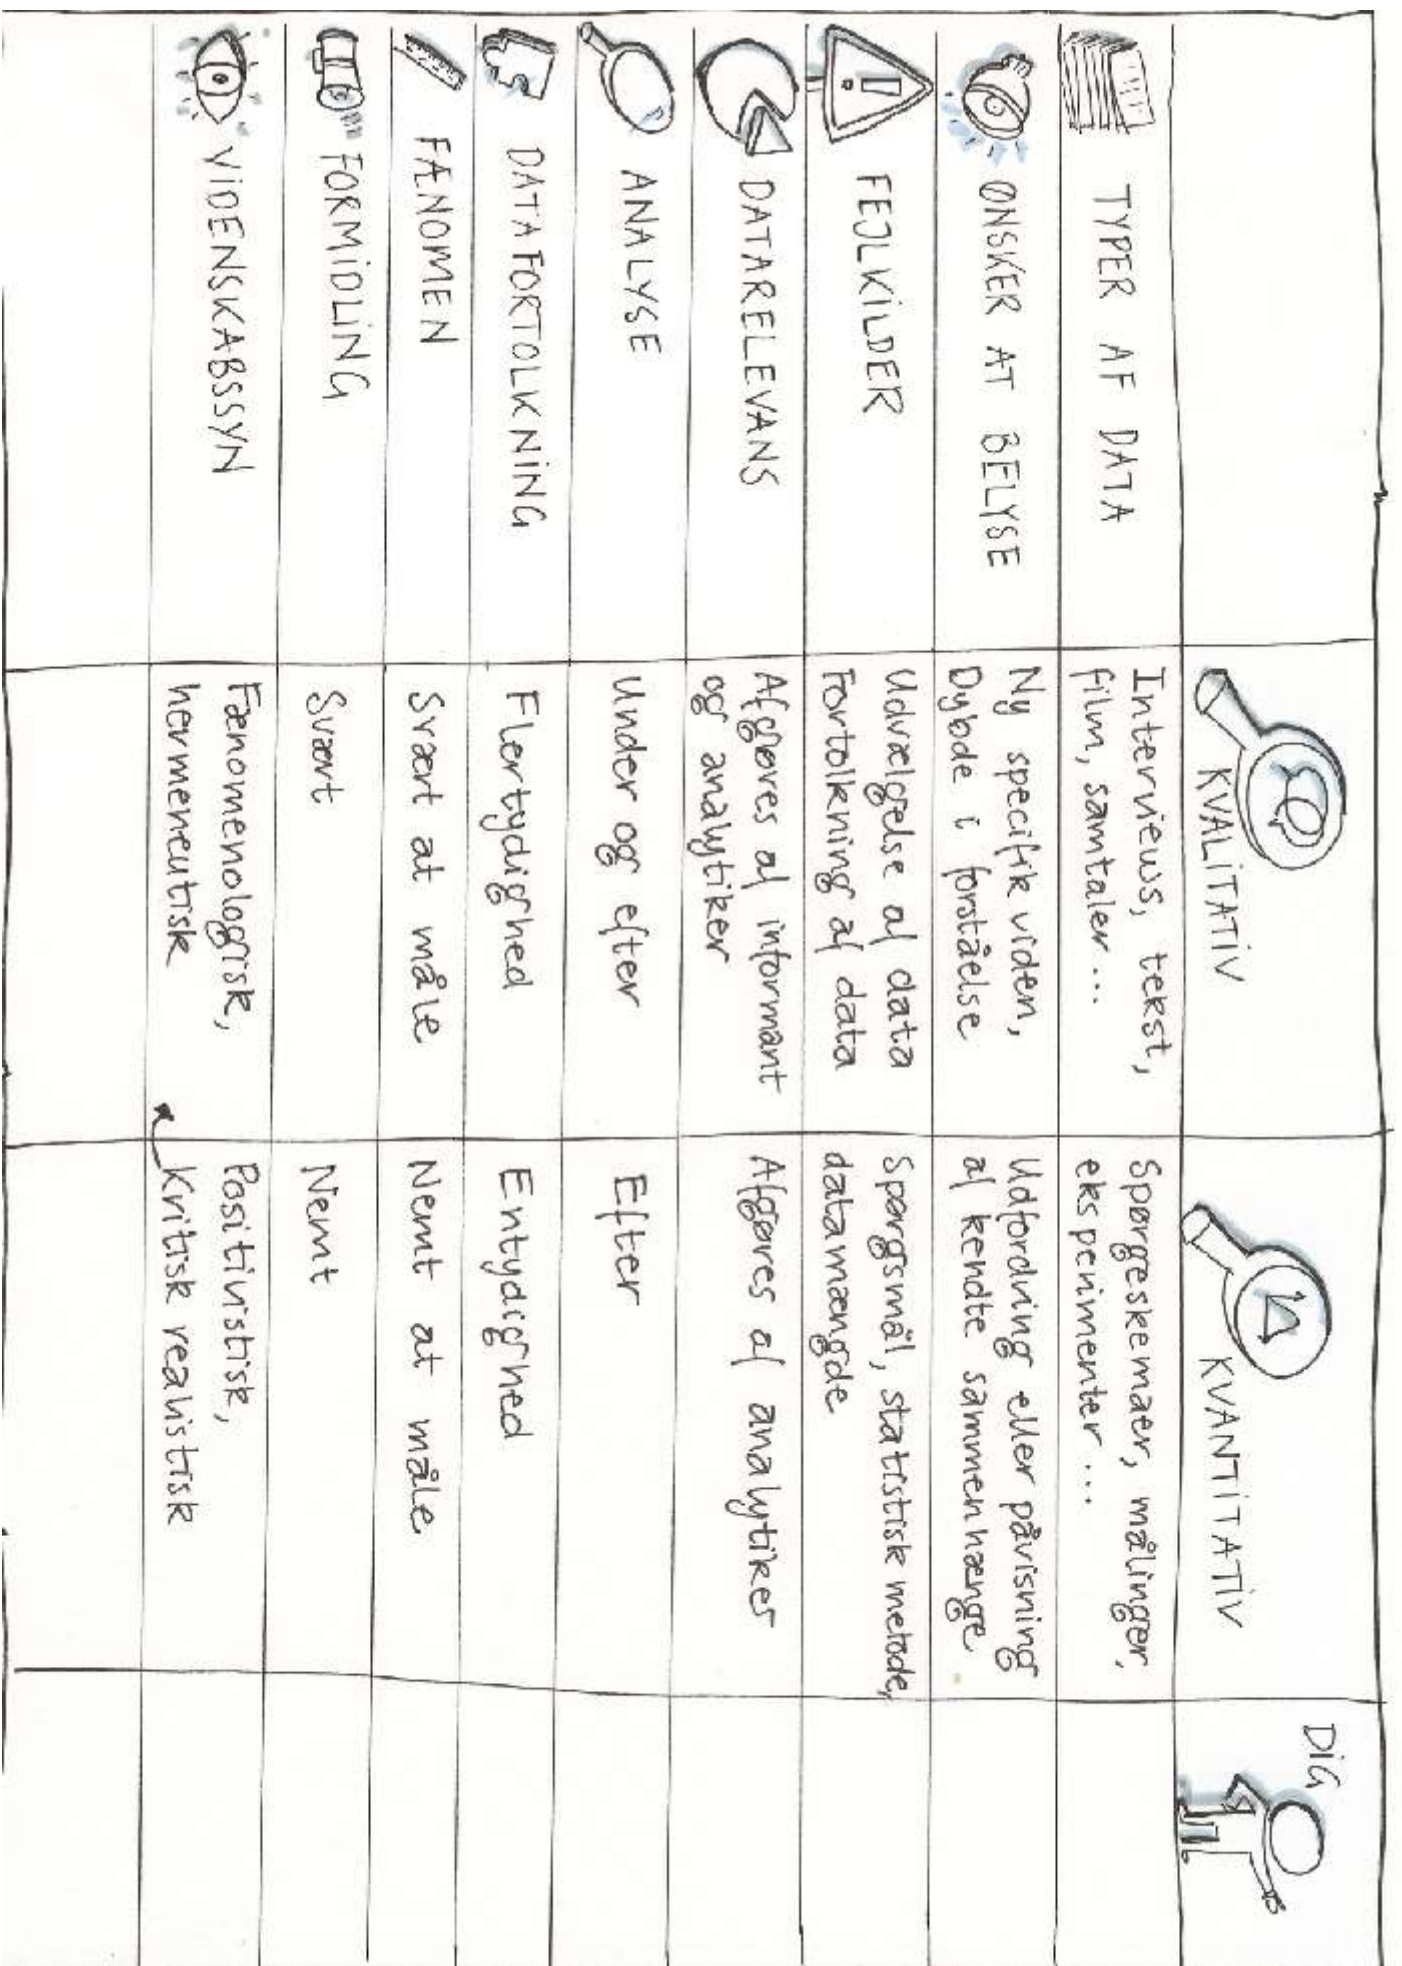 KVALITATIV
KVANTITATIV
DIG
TYPER AF DATA
Interviews, tekst,
film, samtaler...
Spørgeskemaer, målinger,
eksperimenter...
ØNSKER AT BELYSE
Ny specifik viden,
Dybde i forståelse
Udfordring eller påvisning
af kendte sammenhænge
FEJLKILDER
Udvælgelse af data
Fortolkning af data
Spørgsmål, statistisk metode,
datamængde
DATARELEVANS
Afgøres af informant
og analytiker
Afgøres af analytiker
ANALYSE
Under og efter
Efter
DATAFORTOLKNING
Flertydighed
Entydighed
FÆNOMEN
Svært at måle
Nemt at måle
FORMIDLING
Svært
Nemt
VIDENSKABSSYN
Fænomenologisk,
hermeneutisk
Positivistisk,
Kritisk realistisk